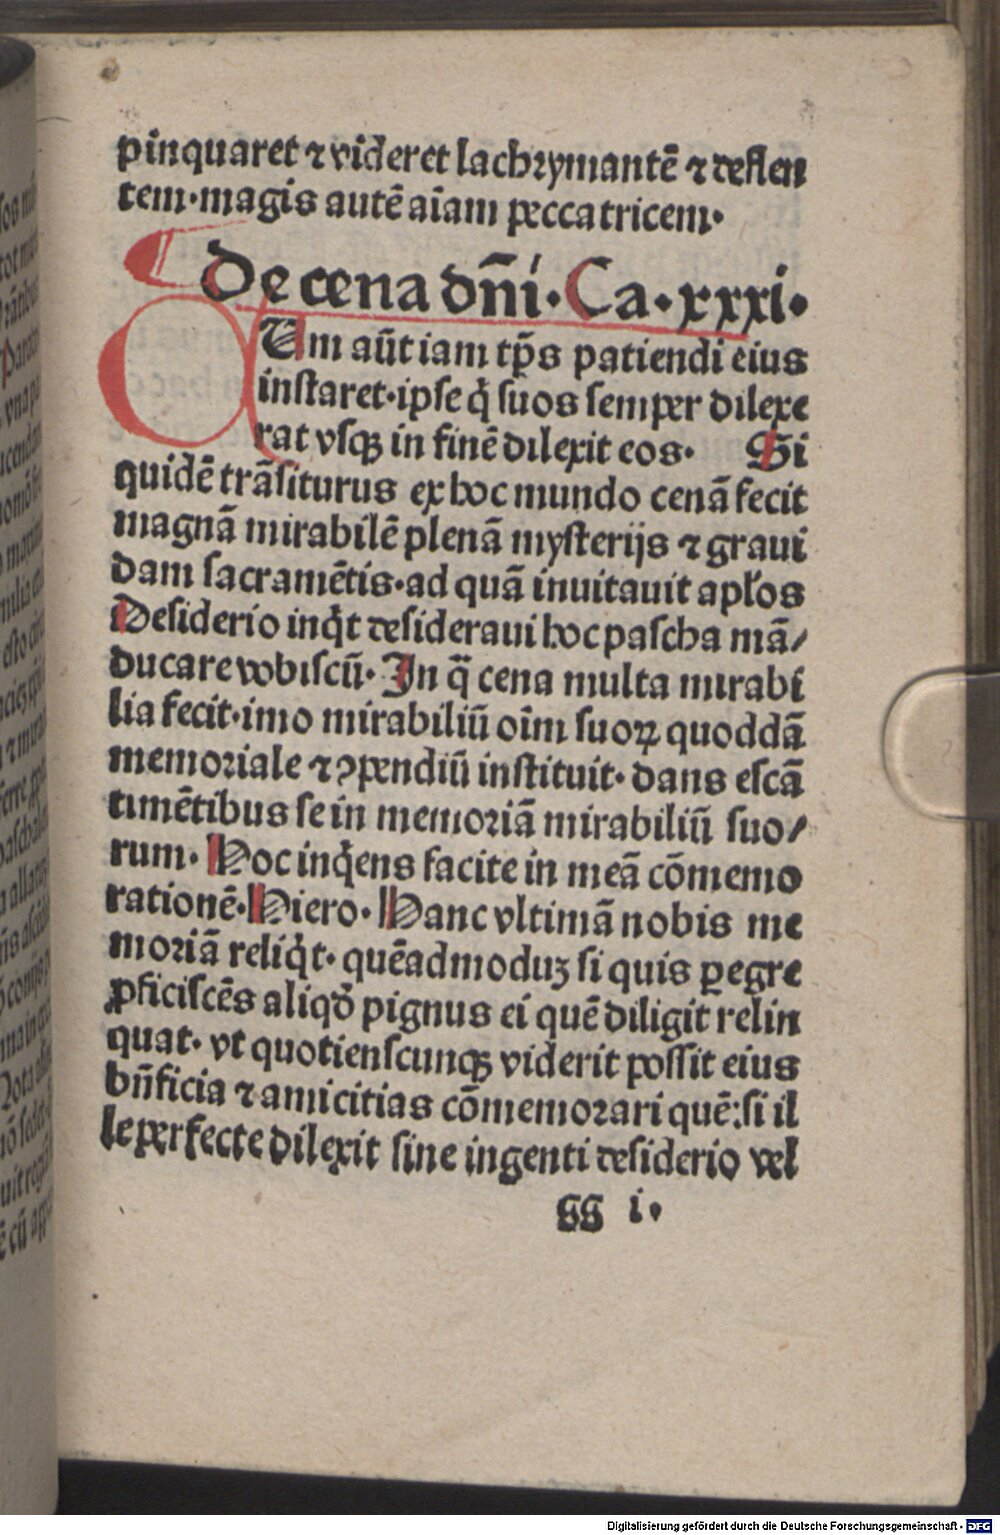 pinquaret ⁊ videret lachrymantē ⁊ deflen
tem·magis autē aīam peccatricem·
De cena dn̄i·Ca·xxxi·
CUm aūt iam tp̄s patiendi eius
instaret·ipse q̇ suos semper dilexe
rat vsqꝫ in finē dilexit eos· Si
quidē trāsiturus ex hoc mundo cenā fecit
magnā mirabilē plenā mysterijs ⁊ graui
dam sacramētis·ad quā inuitauit apl̄os
Desiderio inq̇t desideraui hoc pascha mā/
ducare vobiscū· In q̄ cena multa mirabi
lia fecit·imo mirabiliū oīm suoꝝ quoddā
memoriale ⁊ ꝯpendiū instituit· dans escā
timētibus se in memoriā mirabiliū suo/
rum· Hoc inq̇ens facite in meā cōmemo
rationē·Hiero· Hanc vltimā nobis me
moriā reliq̇t· quēadmoduꝫ si quis ꝑegre
ꝓficiscēs aliqđ pignus ei quē diligit relin
quat· vt quotienscunqꝫ viderit possit eius
bn̄ficia ⁊ amicitias cōmemorari quē:si il
le perfecte dilexit sine ingenti desiderio vel
ss i·
Digitalisierung gefördert durch die Deutsche Forschungsgemeinschaft - DFG